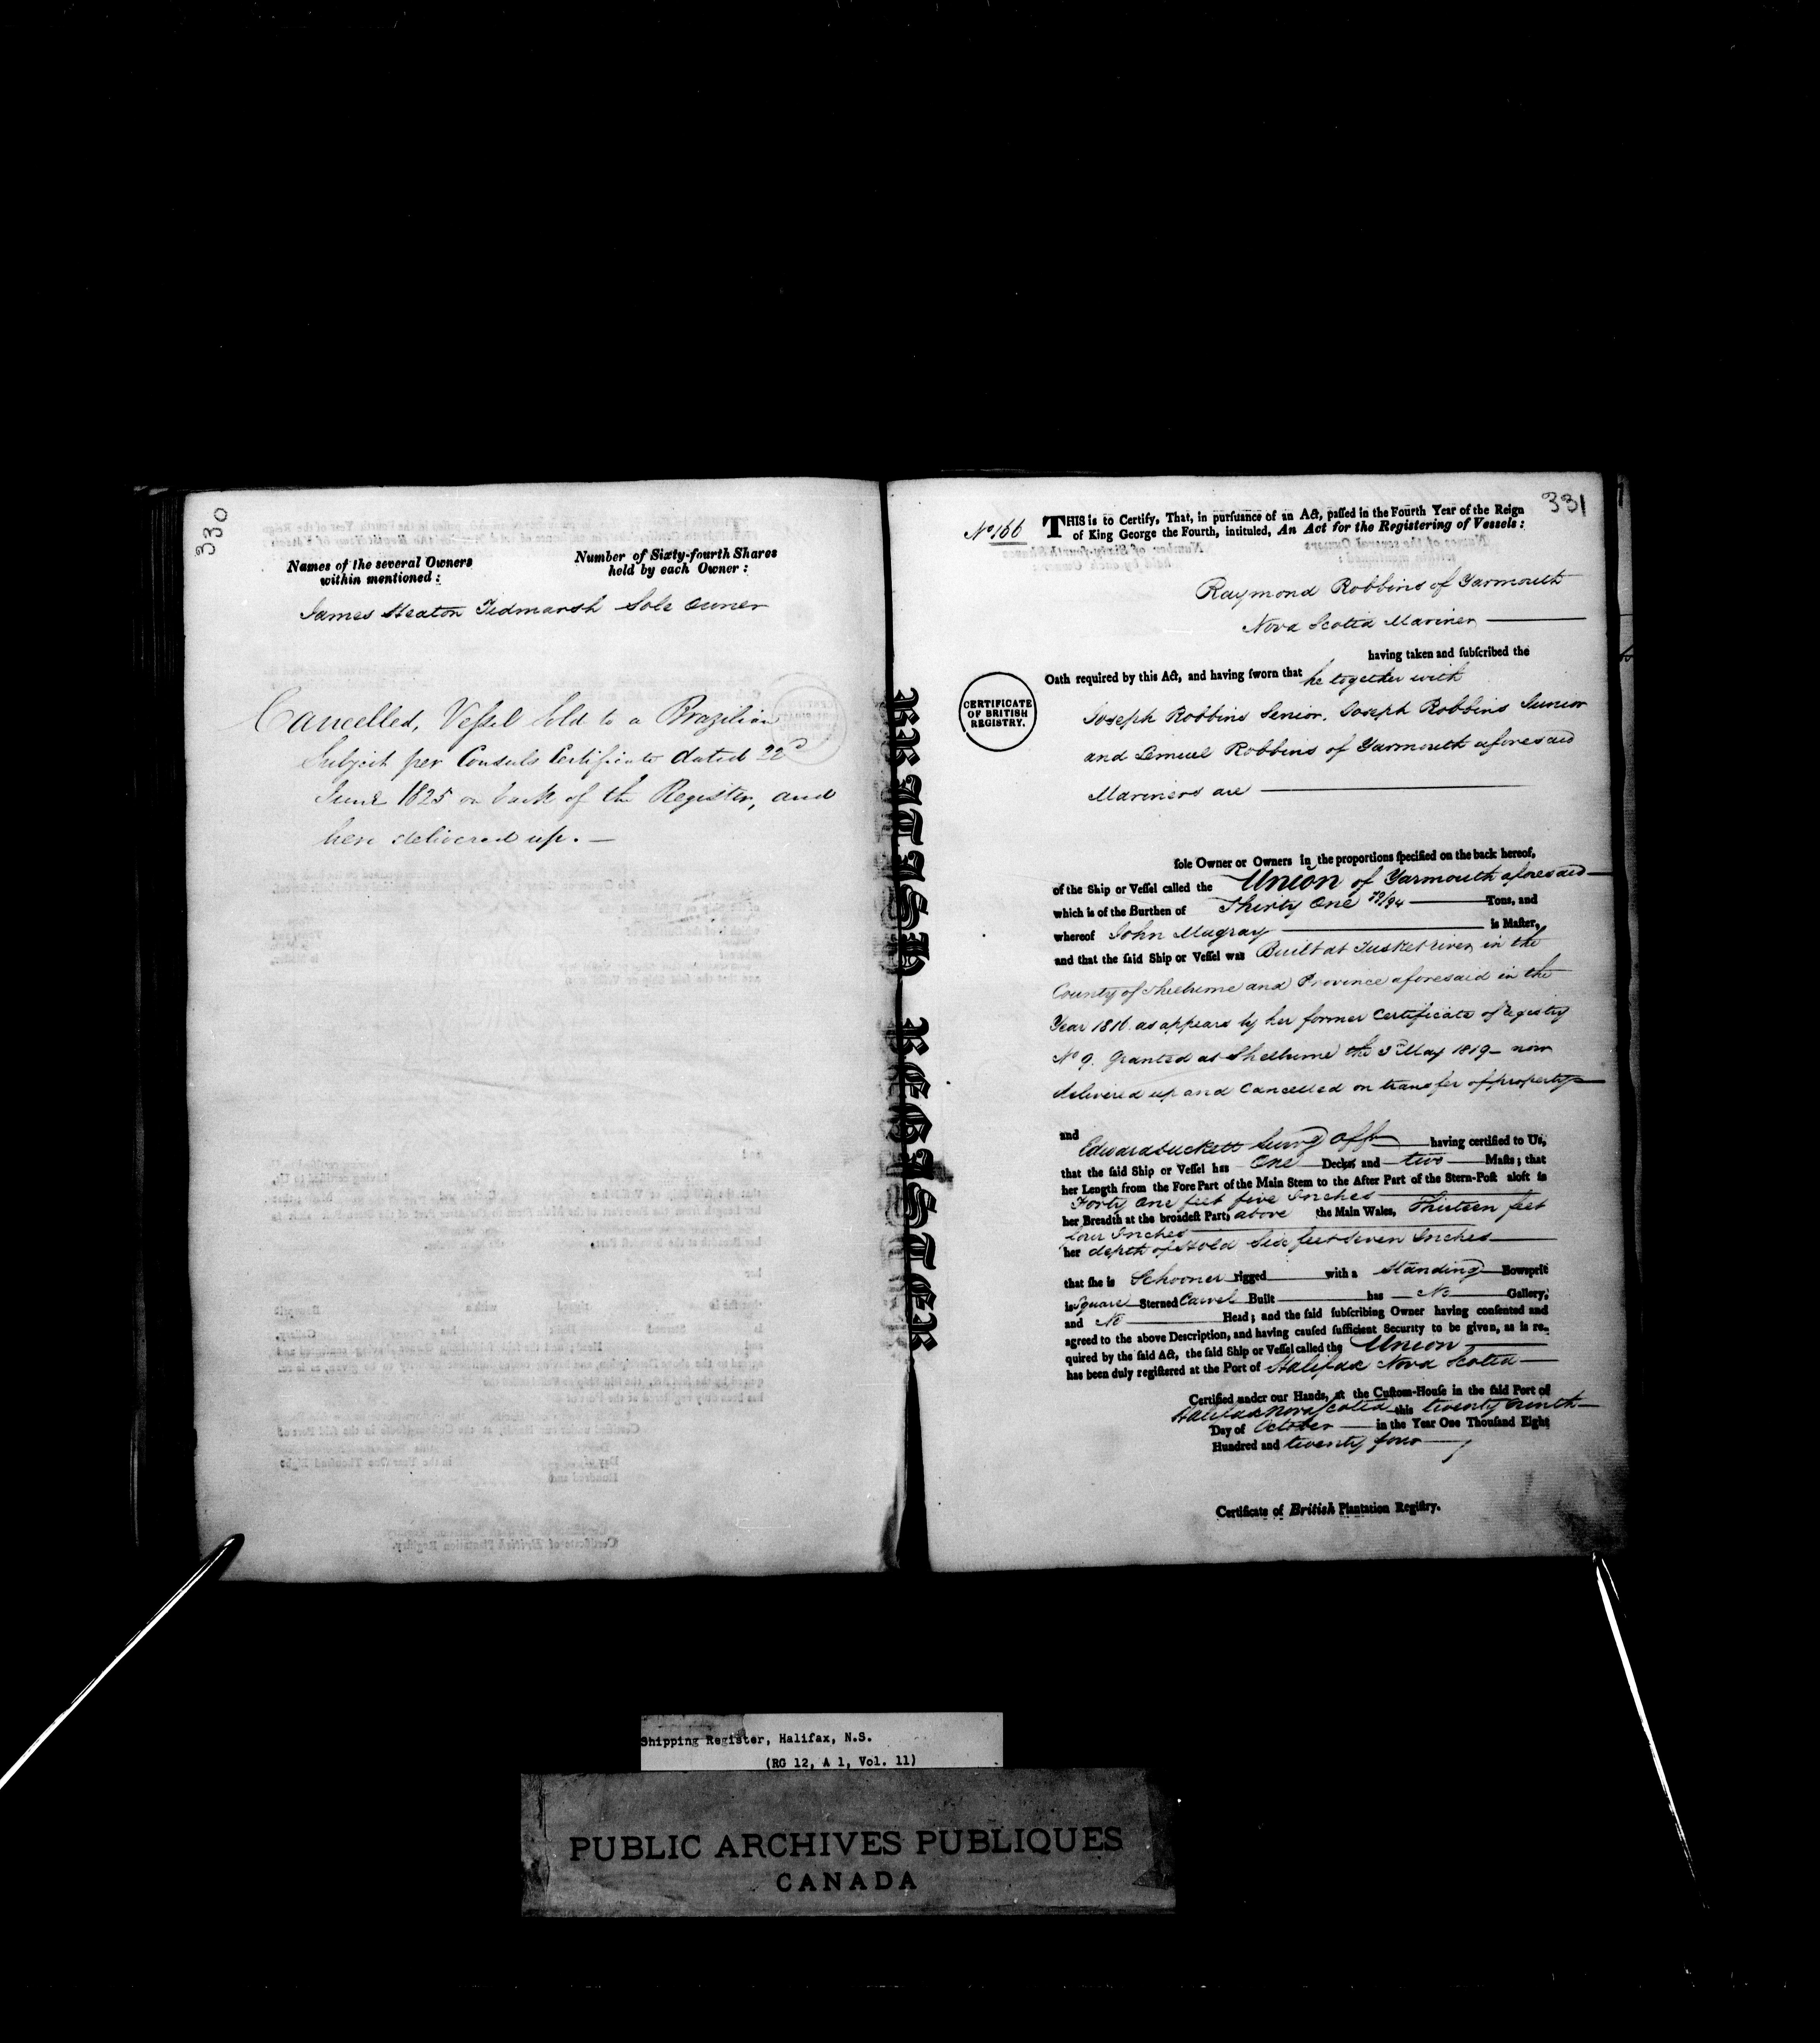 330
Names of the several Owners
within mentioned:
Number of Sixty-fourth Shares
held by each Owner:
James Heaton Tidmarsh Sole Owner
Cancelled, Vessel Sold to a Brazilian
Subject per Consuls Certificate dated 22d
June 1825 on back of the Register, and
here delivered up. —
BRITISH REGISTER
331
No 166
THIS is to Certify, That, in pursuance of an Act, passed in the Fourth Year of the Reign
of King George the Fourth, intituled, An Act for the Registering of Vessels:
Raymond Robbins of Yarmouth
Nova Scotia Mariner
having taken and subscribed the
Oath required by this Act, and having sworn that he together with
CERTIFICATE
OF BRITISH
REGISTRY.
Joseph Robbins Senior. Joseph Robbins Junior
and Lemuel Robbins of Yarmouth aforesaid
Mariners are
sole Owner or Owners in the proportions specified on the back hereof,
of the Ship or Vessel called the Union of Yarmouth aforesaid
which is of the Burthen of Thirty One /94 Tons, and
whereof John Mugray is Master,
and that the said Ship or Vessel was Built at Tusket river in the
County of Shelburne and Province aforesaid in the
Year 1816. as appears by her former Certificate of Registry
No 9. Granted at Shelburne the 3d May 1819 – now
delivered up and Cancelled on transfer of property
and
Edward Luckett Survg Offr having certified to Us,
that the said Ship or Vessel has One Deck and two Masts; that
her Length from the Fore Part of the Main Stem to the After Part of the Stern-Post aloft is
Forty One feet five Inches
her Breadth at the broadest Part, above the Main Wales, Thirteen feet
four Inches
her depth of Hold Six feet Seven Inches
that she is Schooner rigged with a Standing Bowsprit
is Square Sterned Carvel Built has No Gallery,
and No Head; and the said subscribing Owner having consented and
agreed to the above Description, and having caused sufficient Security to be given, as is re-
quired by the said Act, the said Ship or Vessel called the Union
has been duly registered at the Port of Halifax Nova Scotia
Certified under our Hands, at the Custom-House in the said Port of
Halifax Nova Scotia this twenty ninth
Day of October in the Year One Thousand Eight
Hundred and twenty four
Certificate of British Plantation Registry.
Shipping Register, Halifax, N.S.
(RG 12, A 1, Vol. 11)
PUBLIC ARCHIVES PUBLIQUES
CANADA